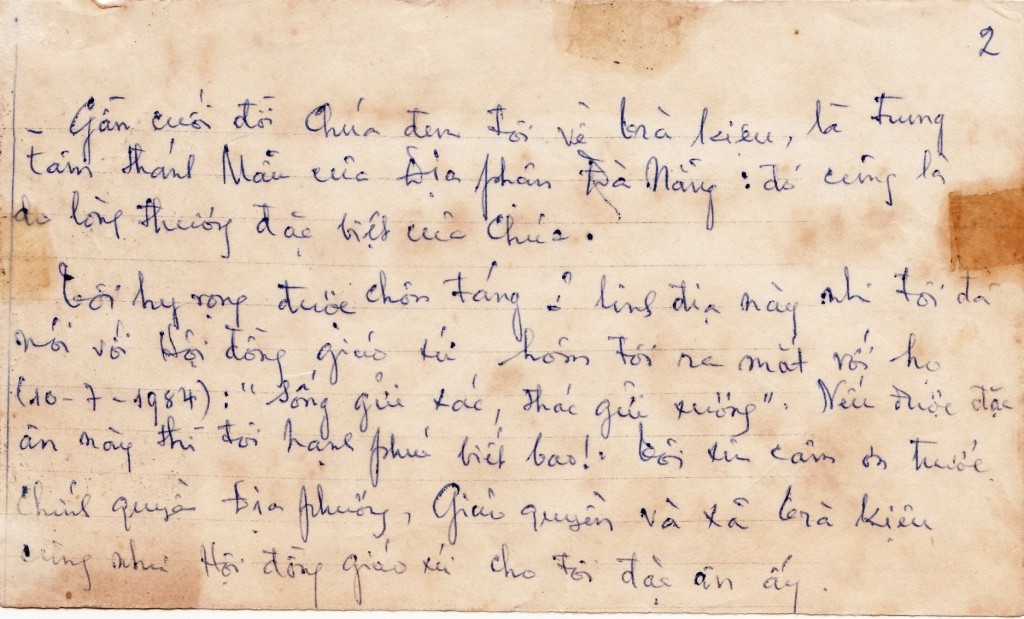 2
- Gần cuối đời Chúa đem tôi về Trà Kiệu, là trung
tâm thánh Mẫu của Địa phận Đà Nẵng : đó cũng là
do lòng thương đặc biệt của Chúa.
Tôi hy vọng được chôn táng ở linh địa này như tôi đã
nói với Hội đồng giáo xứ hôm tôi ra mắt với họ
(10-7-1984) : "Sống gửi xác, thác gửi xương". Nếu được đặc
ân này thì tôi hạnh phúc biết bao! Tôi xin cám ơn trước
Chính quyền Địa phương, Giáo quyền và xã Trà Kiệu
cũng như Hội đồng giáo xứ cho tôi đặc ân ấy.